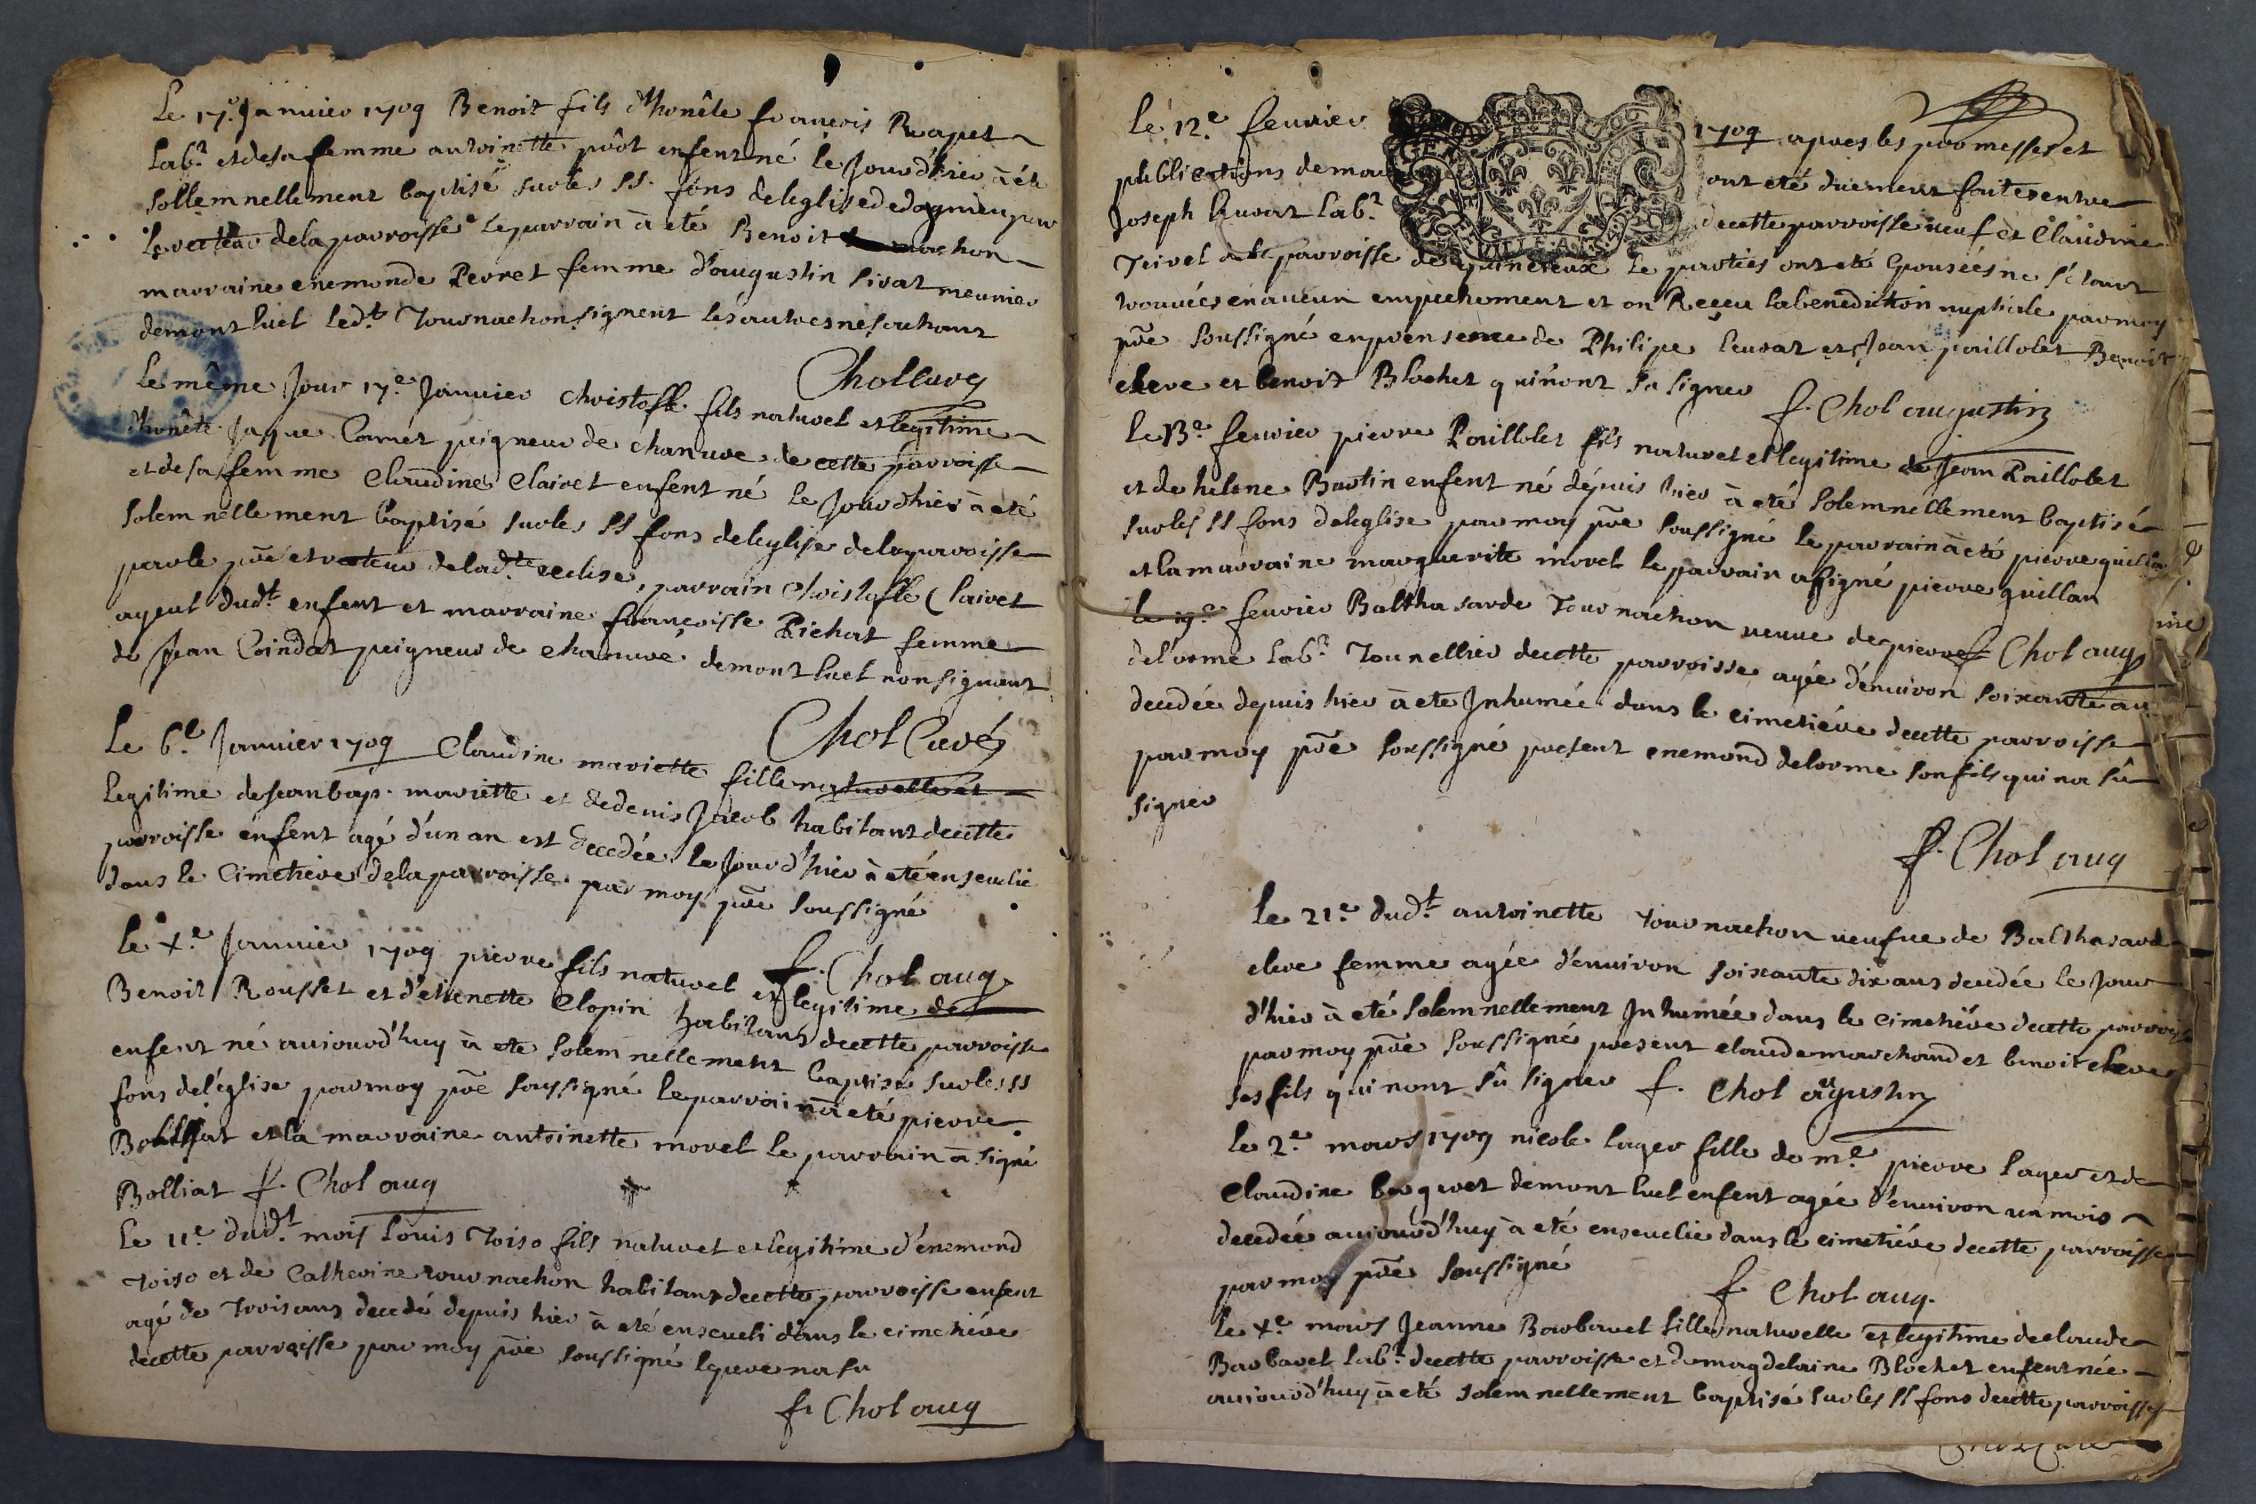 Le 17.e Januier 1709 Benoit fils d'honête francois Rapet
labr. et de sa femme antoinette pôôt enfent né le Jour d'hier à été
sollemnellement baptisé sur les SS. fons de leglise de dagnieu par
le recteur de la parroisse le parrain à eté Benoit
marraine enemonde Perret femme d'augustin sivat meunier
de montluel led.t Tournachon signent les autres ne sachant
Chol curé
Le même Jour 17.e Januier christofle fils naturel et legitime
d'honête Jaque Comet peigneur de chanure de cette parroisse
et de sa femme Claudine Clairet enfent né le Jour d'hier à eté
solemnellement baptisé sur les SS fons de leglise de la parroisse
par le pre et recteur de lad.te eclise, parrain christofle Clairet
ayeul dud.t enfent et marraine francoisse Richat femme
de Jean Coindat peigneur de chanure de montluel non signant
Chol Curé
Le 6.e Januier 1709 Claudine mariette fille naturelle et
legitime de Jean bap. mariette et de denis Jacob habitant de cette
parroisse enfent agé d'un an est decedée le Jour d'hier à eté enseuelie
dans le Cimetiere de la parroisse par moy pre soussigné
f. Chol aug
le X.e Januier 1709 pierre fils naturel et legitime de
Benoit Rousset et d'etienette Clopin habitans de cette parroisse
enfent né auiourd'huy à eté solemnellement baptisé sur les SS
fons de l'église par moy pre soussigné le parrain à eté pierre
Bolliat et la marraine antoinette morel le parrain à signé
Bolliat f. Chol aug
Le 11.e dud.t mois Louis Toiso fils naturel et legitime d'énemond
Toiso et de Catherine tournachon habitans de cette parroisse enfent
agé de trois ans decedé depuis hier à eté enseueli dans le cimetiére
de cette parroisse par moy pre soussigné le pere na su
f. Chol aug
le 12.e feurier 1709 apres les promesses et
publications de ont eté duement faites entre
Joseph leurat labr. de cette parroisse ueuf et Claudine
Teivel parroisse de le parties ont eté épousées ne s'étant
trouuées en aucun empechement et on Reçeu la benediction nuptiale par moy
pre soussigné en presence de Philipe leurat et Jean paillolet Benoit
cleve et benoit Blochet qui n'ont su signer f. Chol augustin
Le 13.e feurier pierre Paillolet fils naturel et legitime de Jean Paillolet
et de helene Bartin enfent né dépuis hier à eté solemnellement baptisé
sur les SS fons de leglise par moy pre soussigné le parrain à eté pierre
et la marraine marguerite morel le parrain a signé pierre guillan
f. Chol aug
le 19.e feurier Balthasarde Tournachon ueuue de pierre
delorme labr. Tounellier de cette parroisse agée d'enuiron soixante an
decedée depuis hier à eté Inhumée dans le cimetiére de cette parroisse
par moy pre soussigné present enemond delorme son fils qui na sû
signer
f. Chol aug
le 21.e dud.t antoinette tournachon ueufue de Balthasard
cleve femme agée d'enuiron soixante dix ans decedée le Jour
d'hier à eté solemnellement Inhumée dans le cimetiére de cette parroisse
par moy pre soussigné present claude marchand et benoit cleve
ses fils qui nont sû signer f. Chol augustin
le 2.e mars 1709 nicole lager fille de m.e pierre lager et de
Claudine de montluel enfent agée d'enuiron un mois
decedée auiourd'huy à eté enseuelie dans le cimetiére de cette parroisse
par moy pre soussigné
f. Chol aug.
le X.e mars Jeanne Barbavel fille naturelle et legitime de claude
Barbavel labr. de cette parroisse et de magdelaine Blochet enfent née
auiourd'huy à eté solemnellement baptisé sur les SS fons de cette parroisse